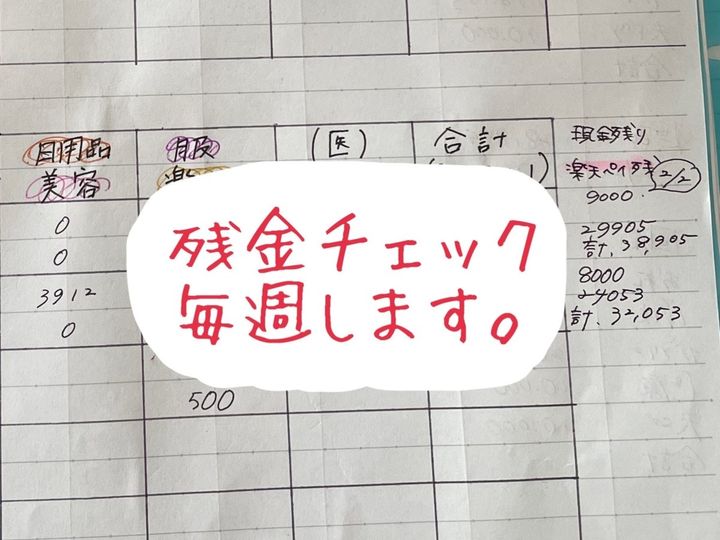 日用品
服
(医)
合計
現金残り
美容
楽天ペイ残
2/2
0
9000
0
29905
計、38,905
3912
8000
24053
0
計、32,053
残金チェック
毎週します。
500